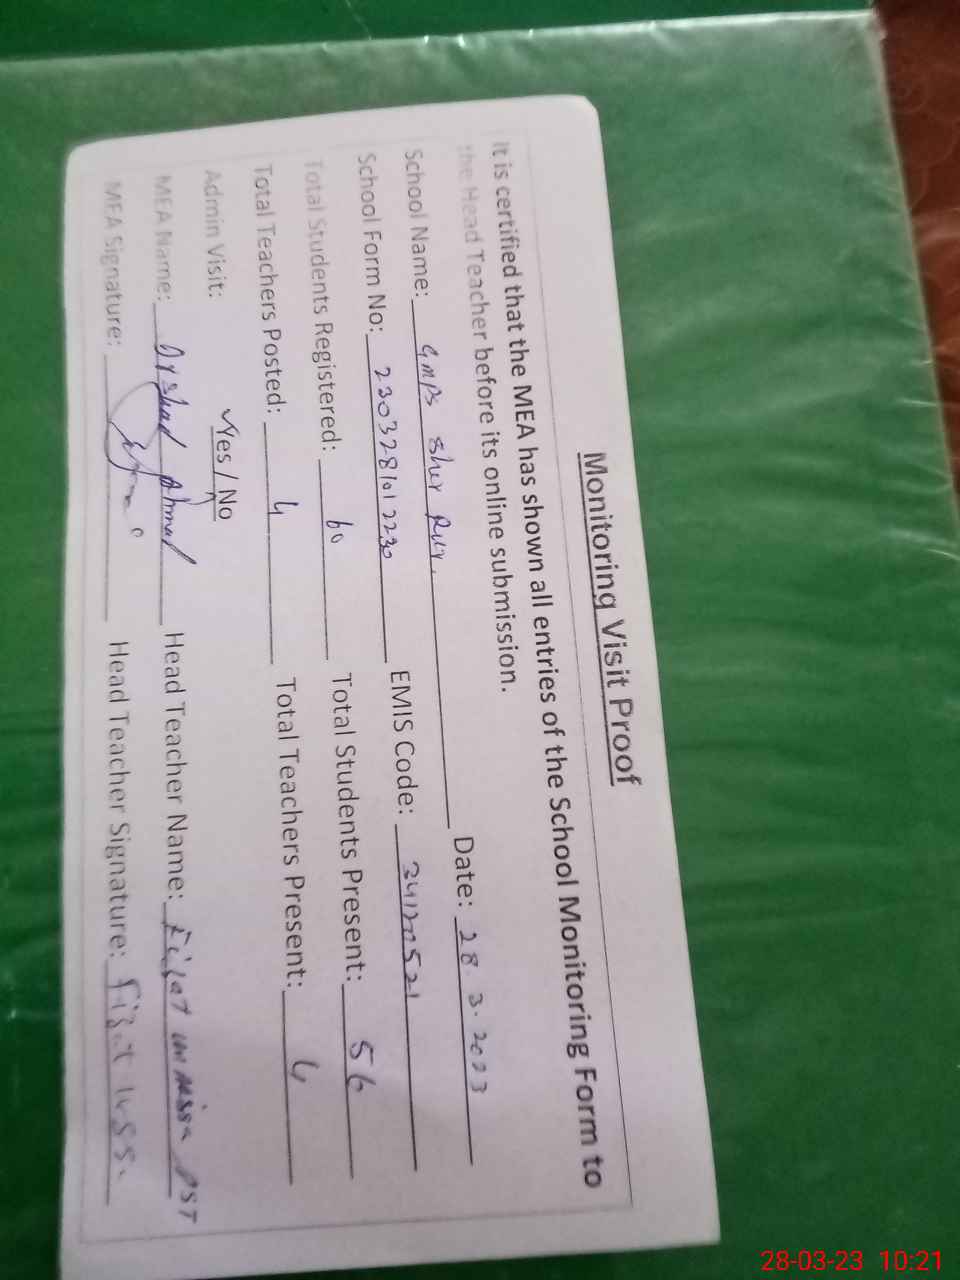 Monitoring Visit Proof
It is certified that the MEA has shown all entries of the School Monitoring Form to
the Head Teacher before its online submission.
School Name: GMPS Sher Date: 28.3.2023
School Form No: 230328101 2230 EMIS Code: 34120521
Total Students Registered: 60 Total Students Present: 56
Total Teachers Posted: 4 Total Teachers Present: 4
Admin Visit: Yes / No
MEA Name: Ahmad Head Teacher Name: un nissa PST
MEA Signature: Head Teacher Signature:
28-03-23 10:21